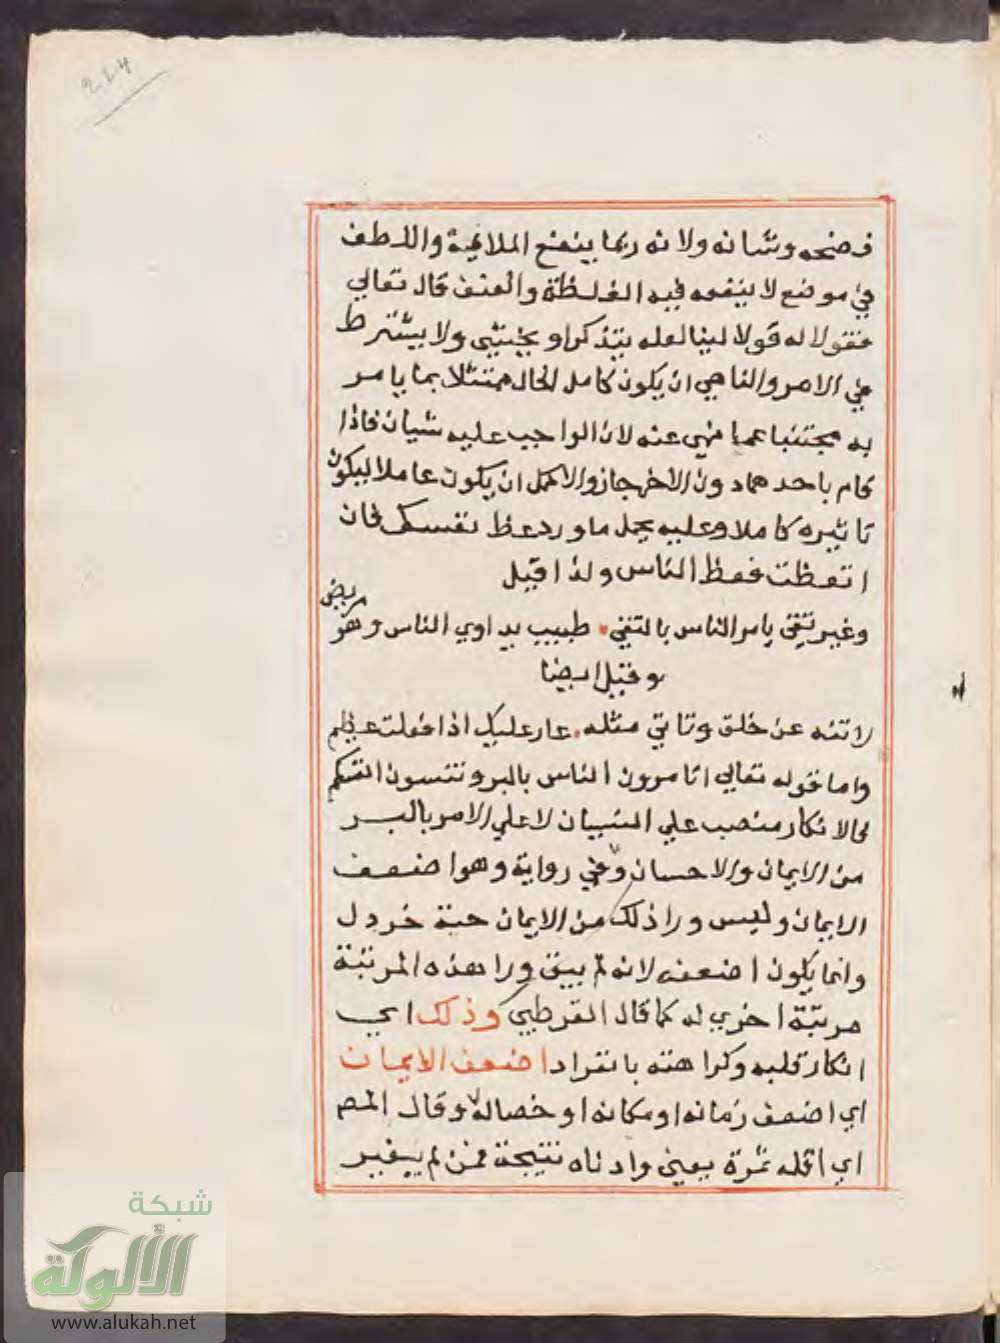 ٢٢٤
فضحه وشانه ولانه ربما ينفع الملاينة واللطف
في موضع لا ينفعه فيه الغلظة والعنف قال تعالي
فقولا له قولا لينا لعله يتذكر او يخشي ولا يشترط
في الامر والناهي ان يكون كامل الحال ممتثلا بما يامر
به مجتنبا عما نهي عنه لان الواجب عليه شيان فاذا
قام باحدهما دون الاخر جاز والاكمل ان يكون عاملا ليكون
تاثيره كاملا وعليه يحمل ما ورد عظ نفسك فان
اتعظت فعظ الناس ولذا قيل
وغير تقي يامر الناس بالتقي . طبيب يداوي الناس وهو مريض
وقيل ايضا
لا تنه عن خلق وتاتي مثله . عار عليك اذا فعلت عظيم
واما قوله تعالي اتامرون الناس بالبر وتنسون انفسكم
فالانكار منصب علي النسيان لا علي الامر بالبر
من الايمان والاحسان وفي رواية وهو اضعف
الايمان وليس ورا ذلك من الايمان حبة خردل
وانما يكون اضعفه لانه لم يبق ورا هذه المرتبة
مرتبة اخري له كما قال القرطبي وذلك اي
انكار قلبه وكراهته بانفراد اضعف الايمان
اي اضعف زمانه او مكانه او خصاله وقال المص
اي اقله ثمرة يعني وادناه نتيجة فمن لم يغير
شبكة
الألوكة
www.alukah.net